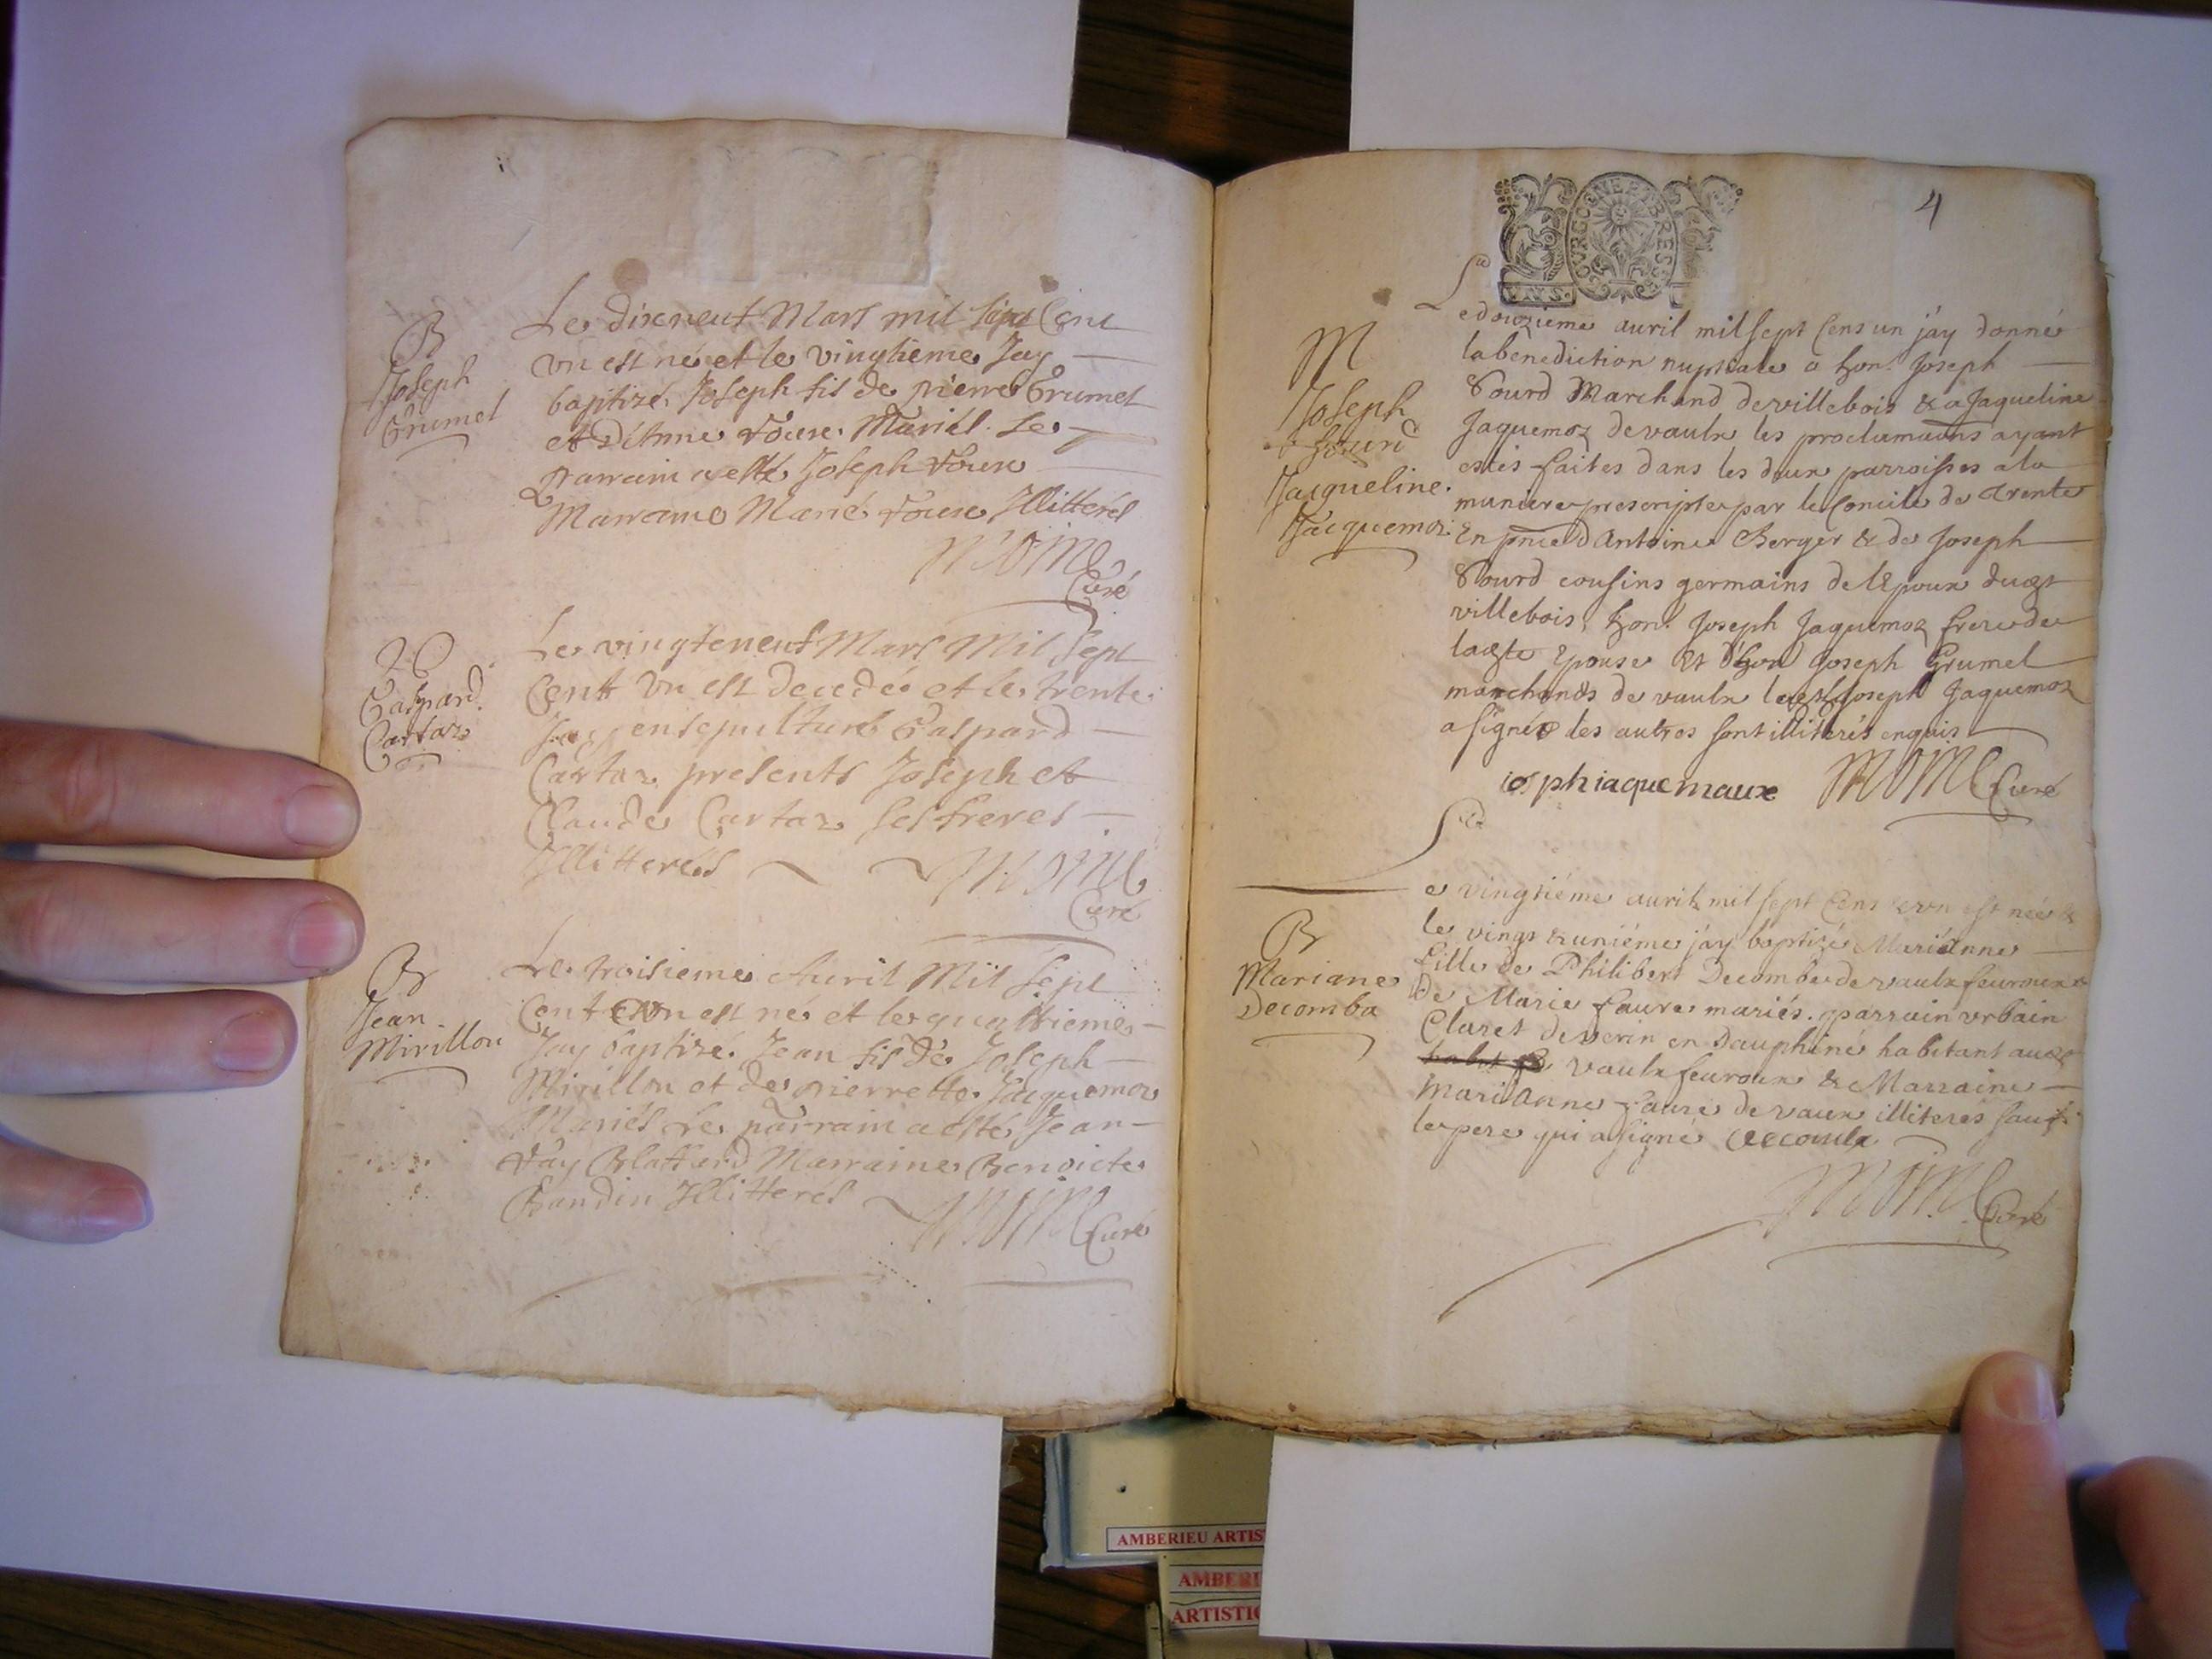 B
Joseph
Grumel
Le dixneuf Mars mil sept Cent
vn est né et le vingtieme Jay
baptizé Joseph fils de pierre Grumel
et d'Anne Mariés. Le
parrain a esté Joseph
Marraine Marie Illitterés
Moine
Curé
Gaspard
Cartaz
Le vingteneuf Mars Mil Sept
Cent Vn est decedé et le trente
ensepulturé Gaspard
Cartaz presents Joseph et
Claude Cartaz ses freres
Illitterés Moine
Curé
B
Jean
Mirillon
Le troisieme Auril Mil Sept
Cent vn est né et le quattrieme
Jay baptizé Jean fils de Joseph
Mirillon et de pierrette Jacquemoz
Mariés Le parrain a esté Jean
Marraine Benoicte
Baudin Illitterés Moine
Curé
4
BOVRGOGNE ET BRESSE
M
Joseph
Jacqueline
Jacquemoz
Le douzieme auril mil sept Cens un jáy donné
la benediction nuptiale a hon. Joseph
Marchand de villebois & a Jaqueline
Jaquemoz de vaulx les proclamations ayant
estés faites dans les deux parroisses a la
maniere prescripte par le Concile de Trente
En pnce d Antoine Berger & de Joseph
cousins germains de lepoux dudt
villebois, hon. Joseph Jaquemoz frere de
ladte epouse et d'hon Joseph Grumel
marchands de vaulx ledt Joseph Jaquemoz
a signé les autres sont illiterés enquis
iosph iaquemaux Moine Curé
B
Mariane
Decomba
Le vingtiéme auril mil sept Cens vn est née &
le vingt & uniéme jáy baptizé Marianne
fille de Philibert Decombe de vaulx feuroux &
de Marie faure mariés. parrain vrbain
Claret de verin en Dauphiné habitant audt
vaulx feuroux & Marraine
Marianne faure de vaux illiteres sauf
le pere qui a signé
Moine Curé
AMBERIEU ARTIS
AMBERI
ARTISTIQ